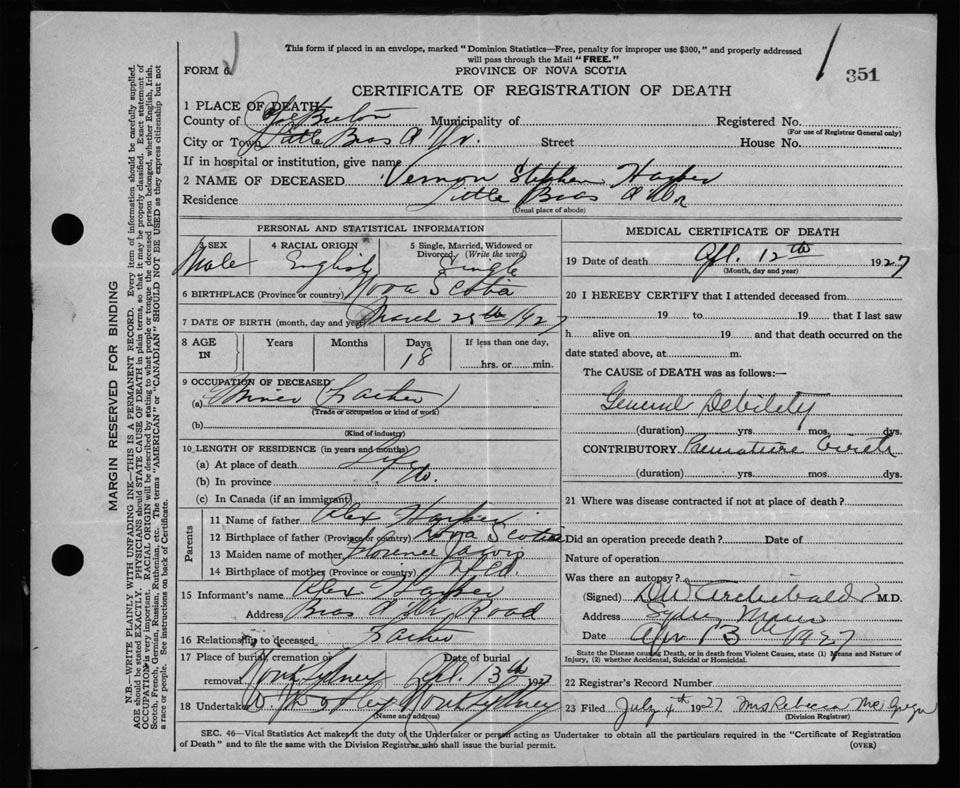 This form if placed in an envelope, marked "Dominion Statistics—Free, penalty for improper use $300," and properly addressed
will pass through the Mail "FREE."
FORM 6
PROVINCE OF NOVA SCOTIA
351
CERTIFICATE OF REGISTRATION OF DEATH
1 PLACE OF DEATH
County of Cape Breton Municipality of Registered No.
(For use of Registrar General only)
City or Town Little Bras d'Or. Street House No.
If in hospital or institution, give name
2 NAME OF DECEASED Vernon Stephen Harper
Residence Little Bras d'Or
(Usual place of abode)
PERSONAL AND STATISTICAL INFORMATION
3 SEX 4 RACIAL ORIGIN 5 Single, Married, Widowed or Divorced. (Write the word)
Male English Single
6 BIRTHPLACE (Province or country) Nova Scotia
7 DATE OF BIRTH (month, day and year) March 25th 1927
8 AGE IN Years Months Days If less than one day,
18 hrs. or min.
9 OCCUPATION OF DECEASED
(a) Miner (Father)
(Trade or occupation or kind of work)
(b)
(Kind of industry)
10 LENGTH OF RESIDENCE (in years and months)
(a) At place of death Life
(b) In province do.
(c) In Canada (if an immigrant)
Parents
11 Name of father Alex Harper
12 Birthplace of father (Province or country) Nova Scotia
13 Maiden name of mother Florence
14 Birthplace of mother (Province or country)
15 Informant's name Alex Harper
Address Bras d'Or Road
16 Relationship to deceased Father
17 Place of burial, cremation or removal Date of burial
North Sydney Apl. 13th 1927
18 Undertaker North Sydney
(Name and address)
MEDICAL CERTIFICATE OF DEATH
19 Date of death Apl. 12th 1927
(Month, day and year)
20 I HEREBY CERTIFY that I attended deceased from
19 to 19 that I last saw
h alive on 19 and that death occurred on the
date stated above, at m.
The CAUSE of DEATH was as follows:—
General Debility
(duration) yrs. mos. dys.
CONTRIBUTORY Premature birth
(duration) yrs. mos. dys.
21 Where was disease contracted if not at place of death?
Did an operation precede death? Date of
Nature of operation
Was there an autopsy?
(Signed) Archibald M.D.
Address Sydney Mines
Date Apr 13th 1927
State the Disease causing Death, or in death from Violent Causes, state (1) Means and Nature of
Injury, (2) whether Accidental, Suicidal or Homicidal.
22 Registrar's Record Number
23 Filed July 4th 1927 Mrs Rebecca McGregor
(Division Registrar)
SEC. 46—Vital Statistics Act makes it the duty of the Undertaker or person acting as Undertaker to obtain all the particulars required in the "Certificate of Registration
of Death" and to file the same with the Division Registrar who shall issue the burial permit.
(OVER)
MARGIN RESERVED FOR BINDING
N.B.—WRITE PLAINLY WITH UNFADING INK—THIS IS A PERMANENT RECORD. Every item of information should be carefully supplied.
AGE should be stated EXACTLY. PHYSICIANS should STATE CAUSE OF DEATH in plain terms, so that it may be properly classified. Exact statement of
OCCUPATION is very important. RACIAL ORIGIN will be described by stating to what people or tongue the deceased person belonged, whether English, Irish,
Scotch, French, German, Russian, Ruthenian, etc. The terms "AMERICAN" or "CANADIAN" SHOULD NOT BE USED as they express citizenship but not
a race or people. See instructions on back of Certificate.